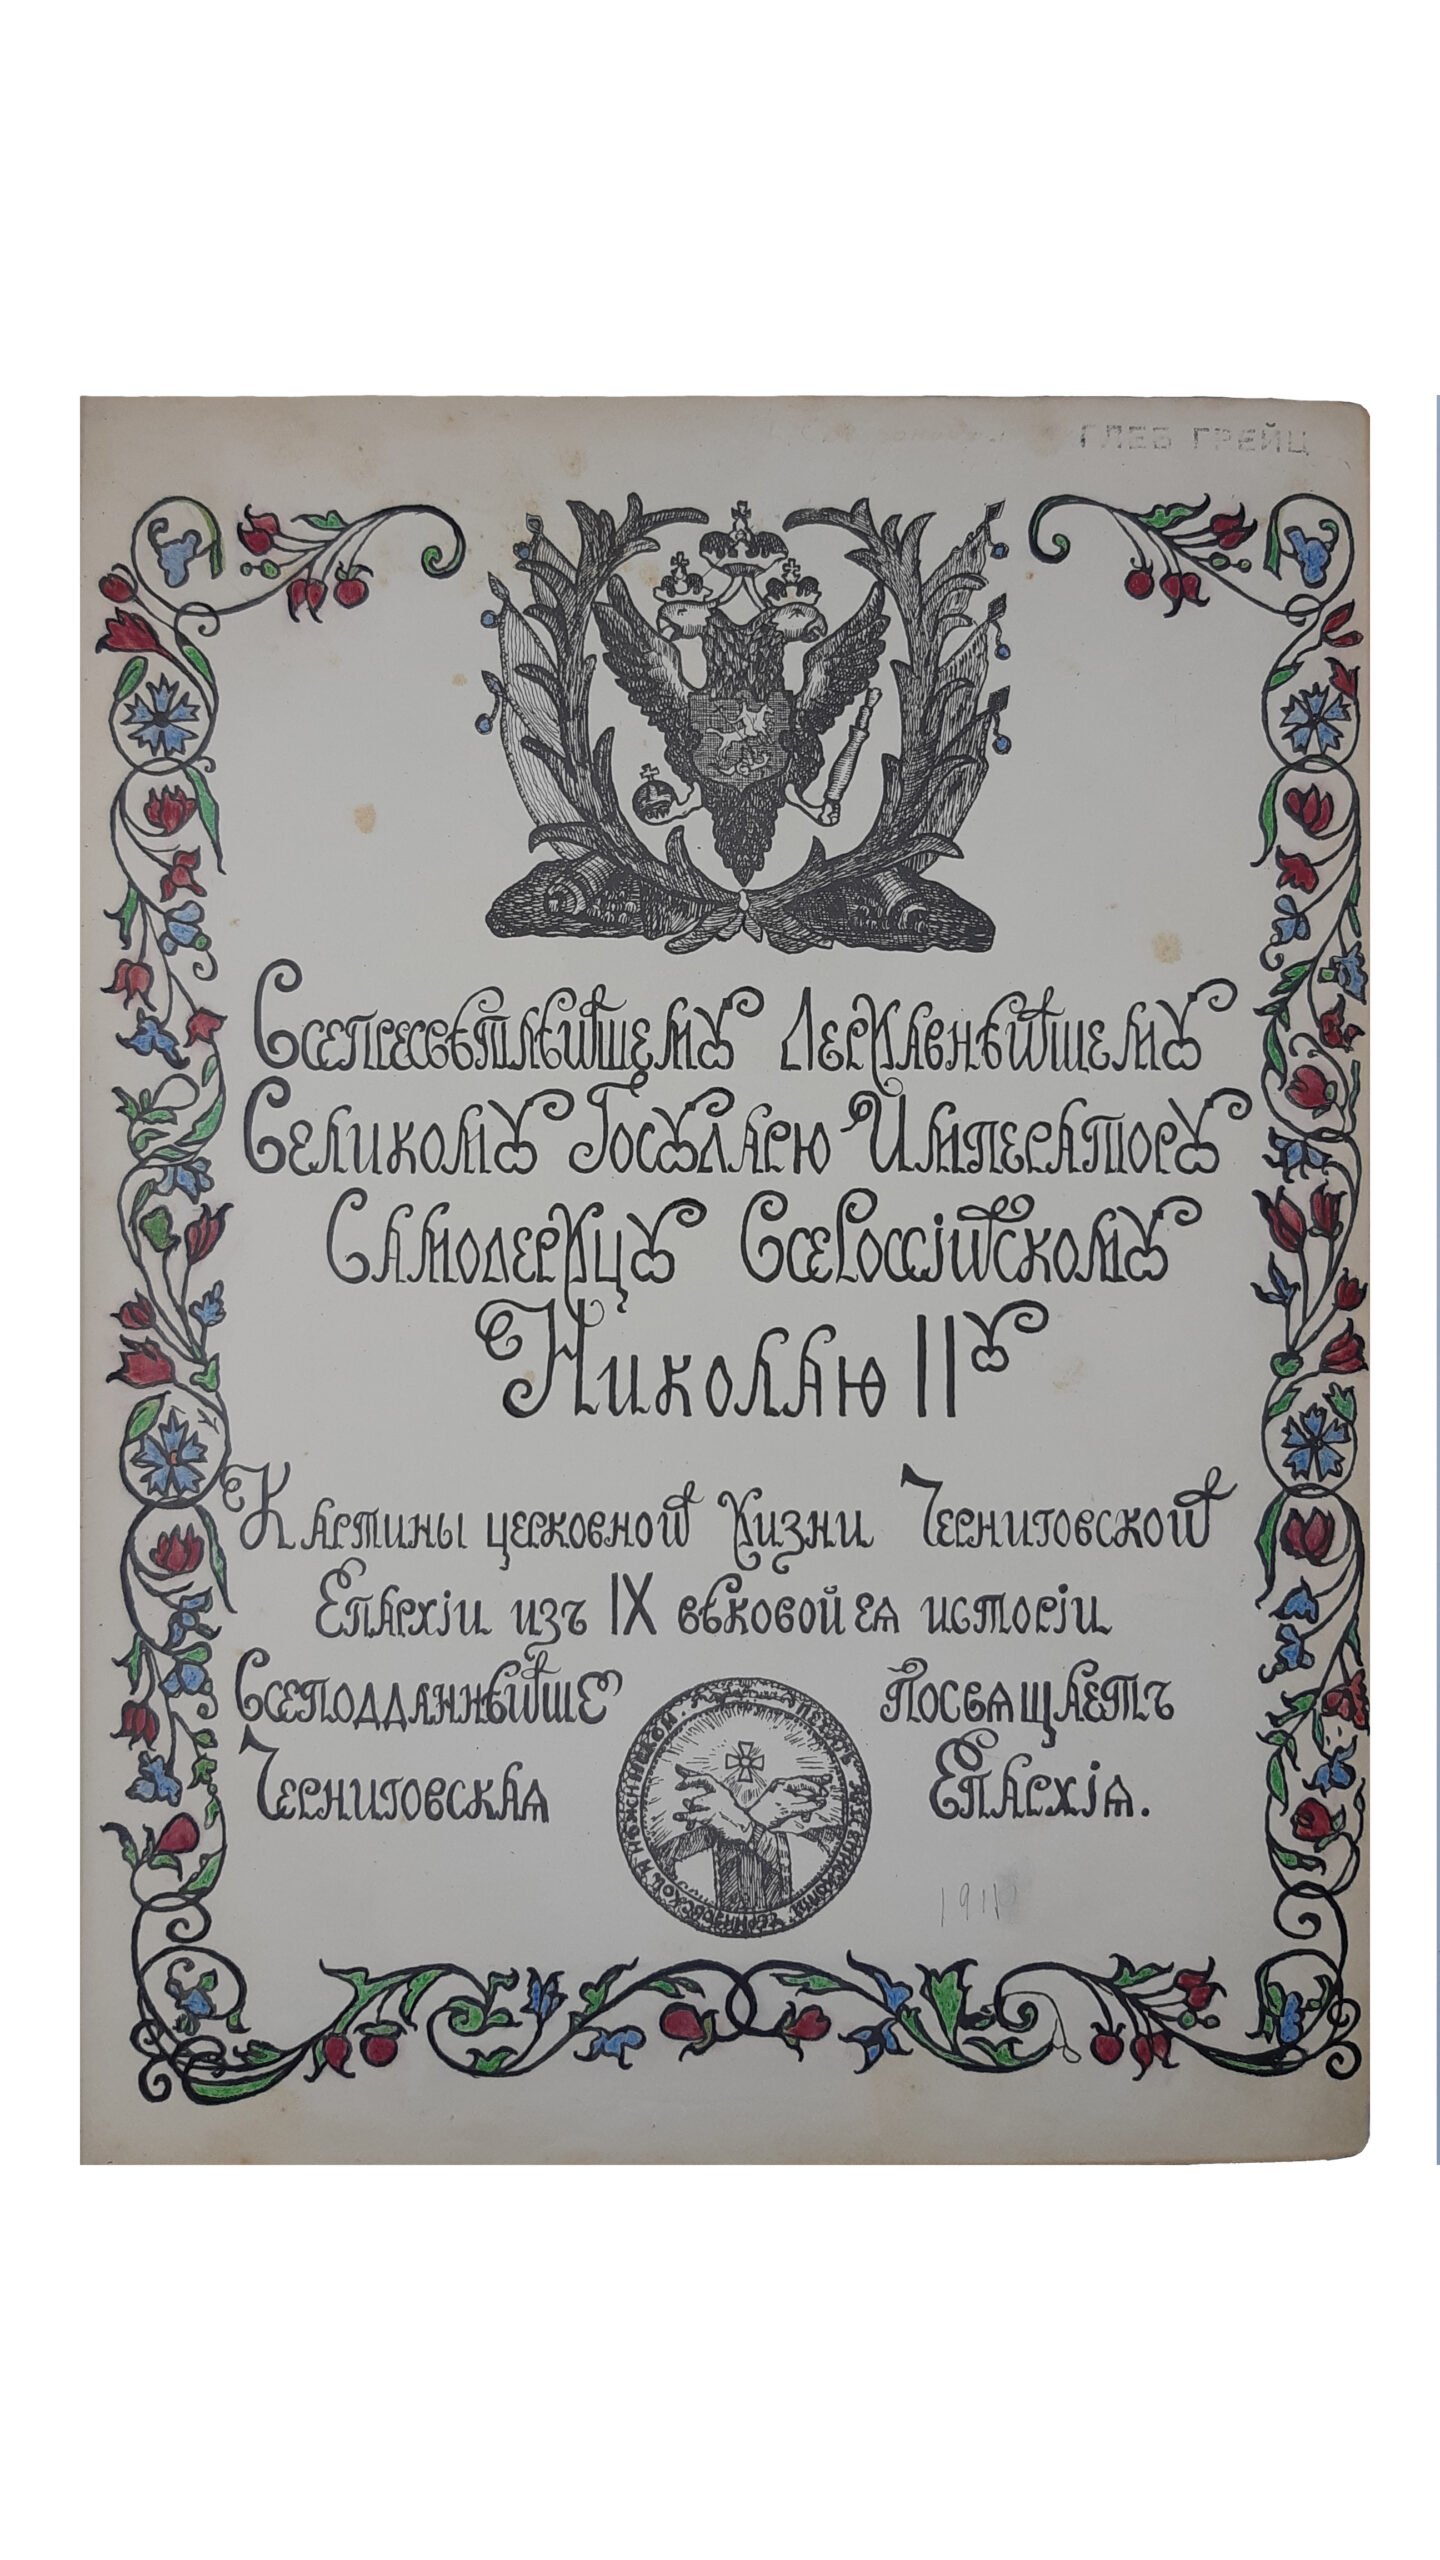 ГЛЕБ ГРЕЙЦ
Всепресвѣтлѣйшемꙋ Державнѣйшемꙋ
Великомꙋ Госꙋдарю Императорꙋ
Самодержцꙋ Всероссійскомꙋ
Николаю IIꙋ
Картины церковной жизни Черниговской
Епархіи изъ IX вѣковой ея исторіи
Всеподданнѣйше Посвящаетъ
Черниговская Епархія.
1911